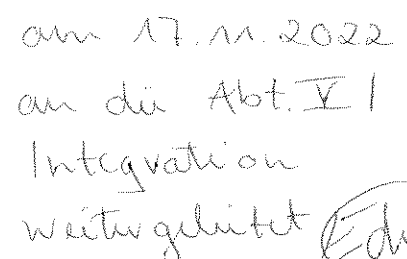 am 17.11.2022
an die Abt. V /
Integration
weitergeleitet